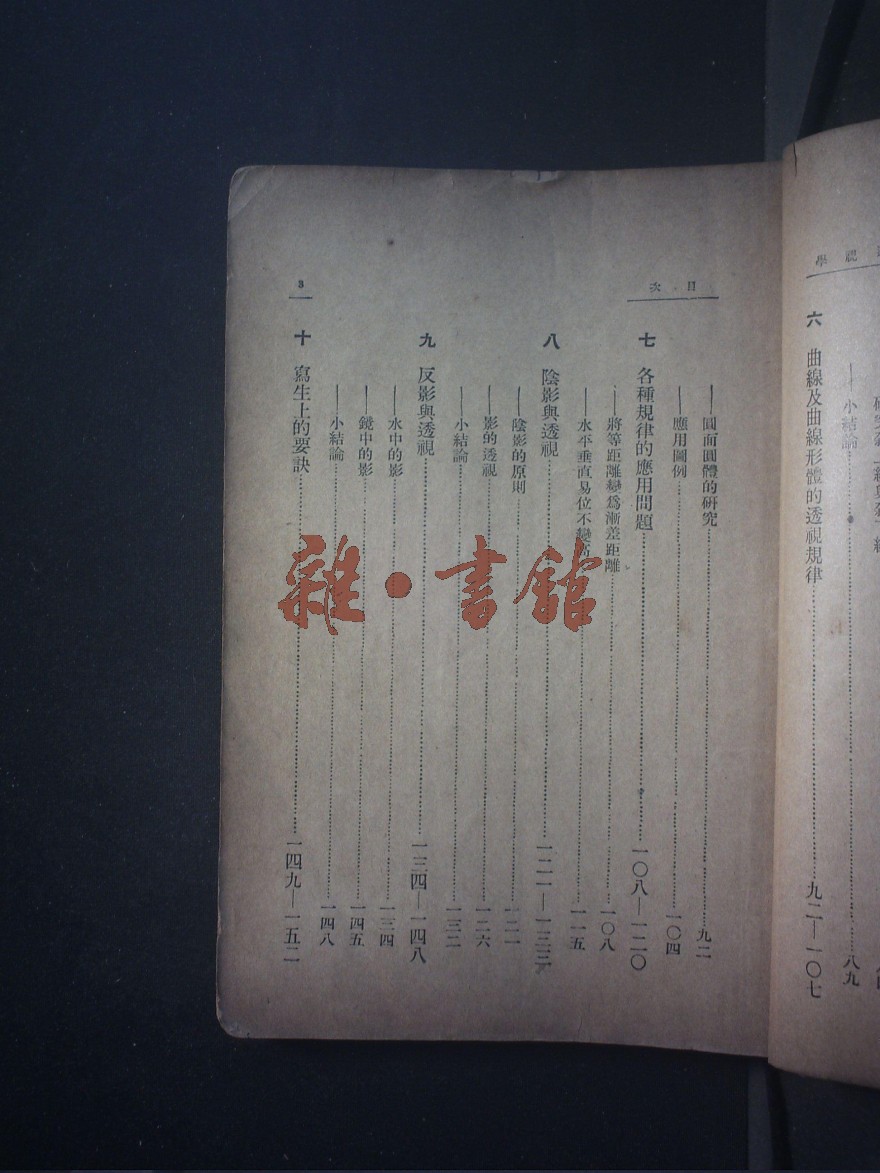 視學
六 曲線及曲線形體的透視規律……九二—一〇七
——小結論……八九
目次
——圓面圓體的研究……九二
——應用圖例……一〇四
七 各種規律的應用問題……一〇八—一二〇
——將等距離變爲漸差距離……一〇八
——水平垂直易位不變……一一五
八 陰影與透視……一二一—一三三
——陰影的原則……一二一
——影的透視……一二六
——小結論……一三二
九 反影與透視……一三四—一四八
——水中的影……一三四
——鏡中的影……一四五
——小結論……一四八
十 寫生上的要訣……一四九—一五二
3
雜·書館